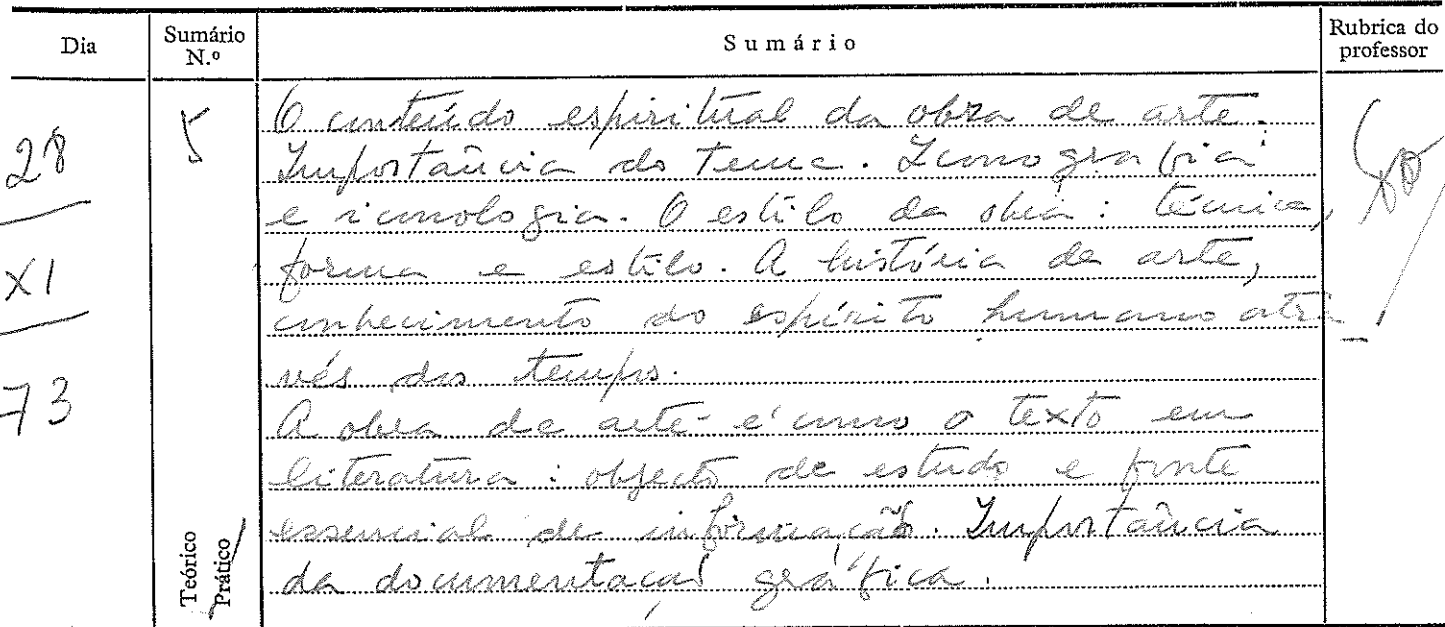 Dia
Sumário N.º
Sumário
Rubrica do professor
28
XI
73
5
O conteúdo espiritual da obra de arte.
Importância do tema. Iconografia
e iconologia. O estilo da obra: técnica,
forma e estilo. A história da arte,
conhecimento do espírito humano atra
vés dos tempos.
A obra de arte é como o texto em
literatura: objecto de estudo e fonte
essencial de informação. Importância
da documentação gráfica.
Teórico
Prático